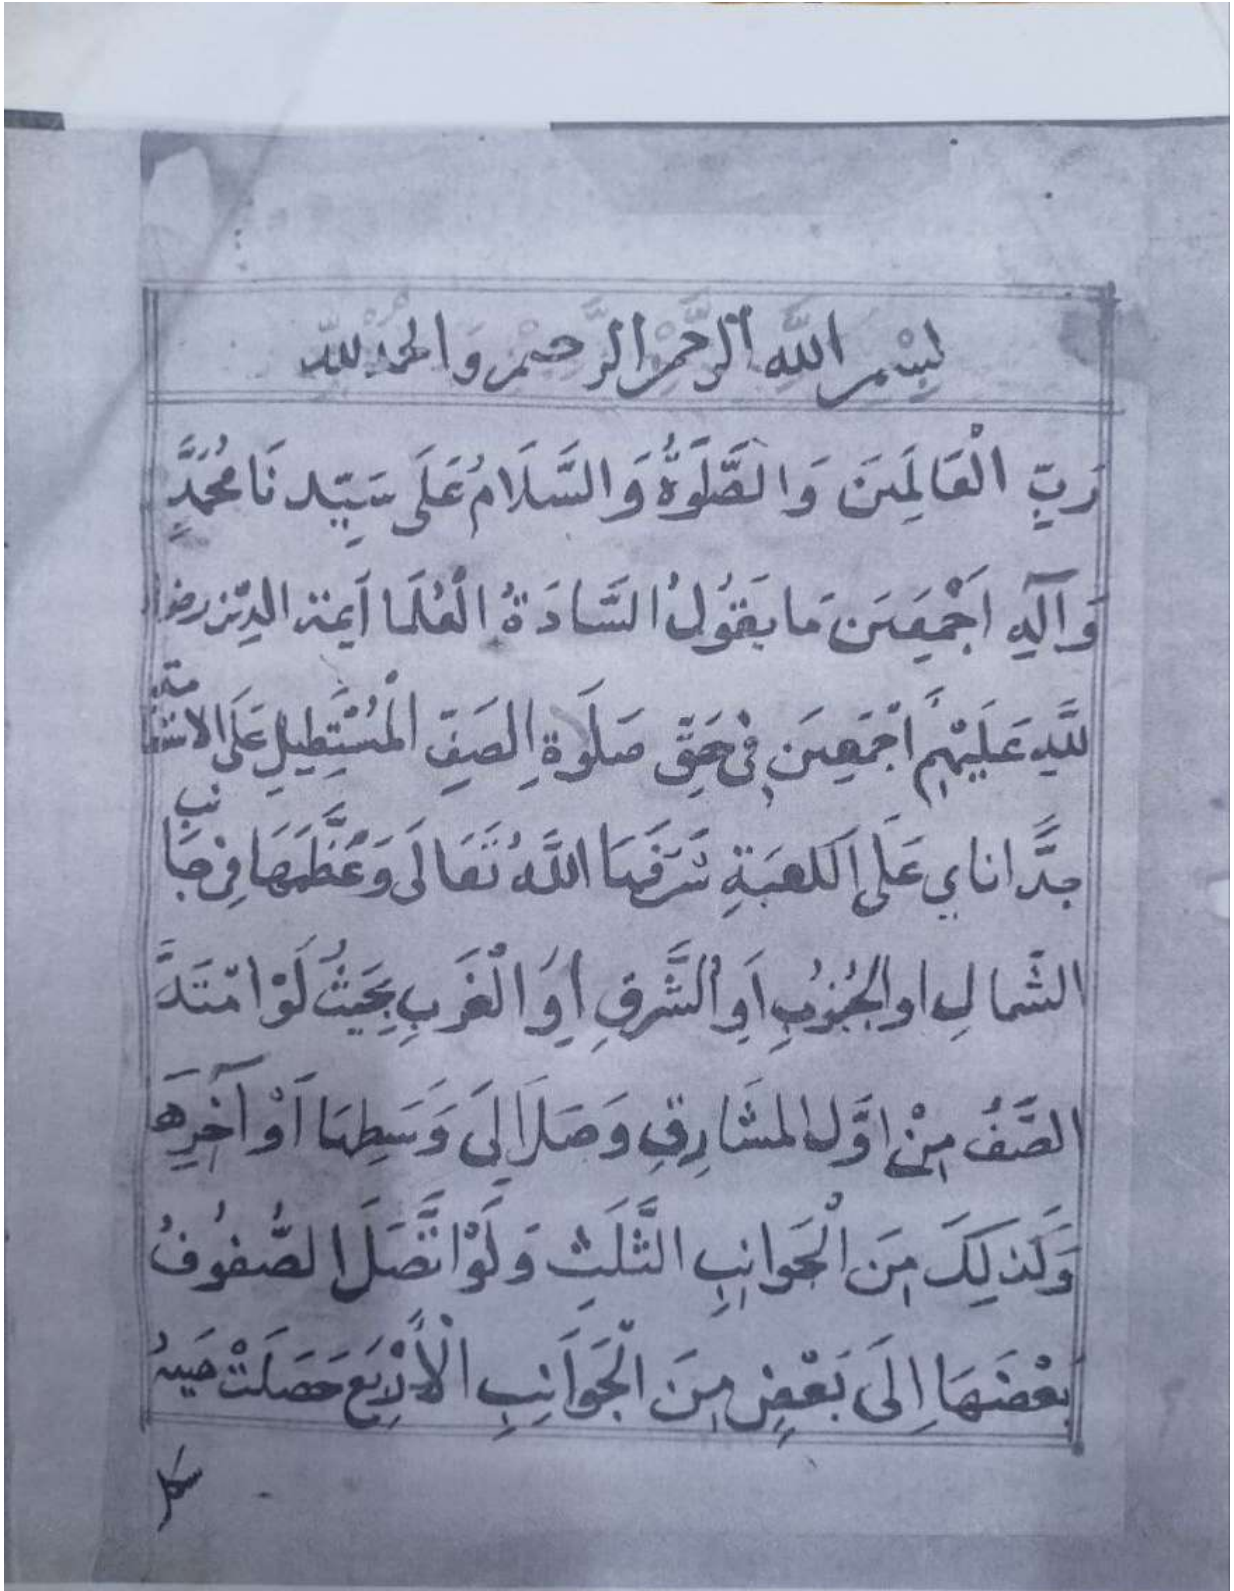 بِسْمِ اللَّهِ الرَّحْمٰنِ الرَّحِيْمِ وَالْحَمْدُ لِلّٰهِ
رَبِّ الْعَالَمِينَ وَالصَّلَوةُ وَالسَّلَامُ عَلَى سَيِّدِنَا مُحَمَّدٍ
وَآلِهِ اَجْمَعِينَ مَا يَقُولُ السَّادَةُ الْعُلَمَا اَيمة الدِّين رضوا
للَّهِ عَلَيْهِمْ اَجْمَعِينَ فِي حَقِّ صَلَوةِ الصَفِّ الْمُسْتَطِيلِ عَلَى الاستقامة
جِدًّا اناي عَلَى الكعبَةِ شَرَفَهَا اللَّهُ تَعَالَى وَعَظَّمَهَا فِي جَانب
الشَّمالِ او الْجُنُوبِ اَوِ الشَّرقِ اَوِ الْغَربِ بِحَيثُ لَوْ امْتَدَّ
الصَّفُ مِنْ اوَّلِ المشَارِقِ وَصَلَ اِلَى وَسَطِهَا اَوْ آخِرِهَا
وَكَذلِكَ مِنَ الْجَوانِبِ الثَّلَثِ وَلَوْ اتَّصَلَ الصُّفُوفُ
بَعْضَهَا اِلَى بَعْضٍ مِنَ الْجَوَانِبِ الْأَرْبَعِ حَصَلَتْ